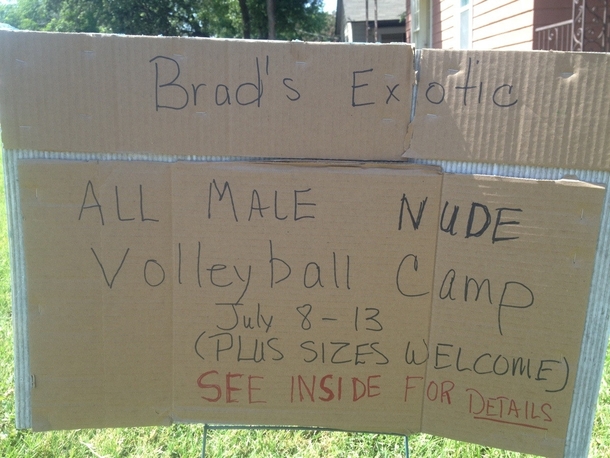 Brad's Exotic
ALL MALE NUDE
Volleyball Camp
July 8-13
(PLUS SIZES WELCOME)
SEE INSIDE FOR DETAILS